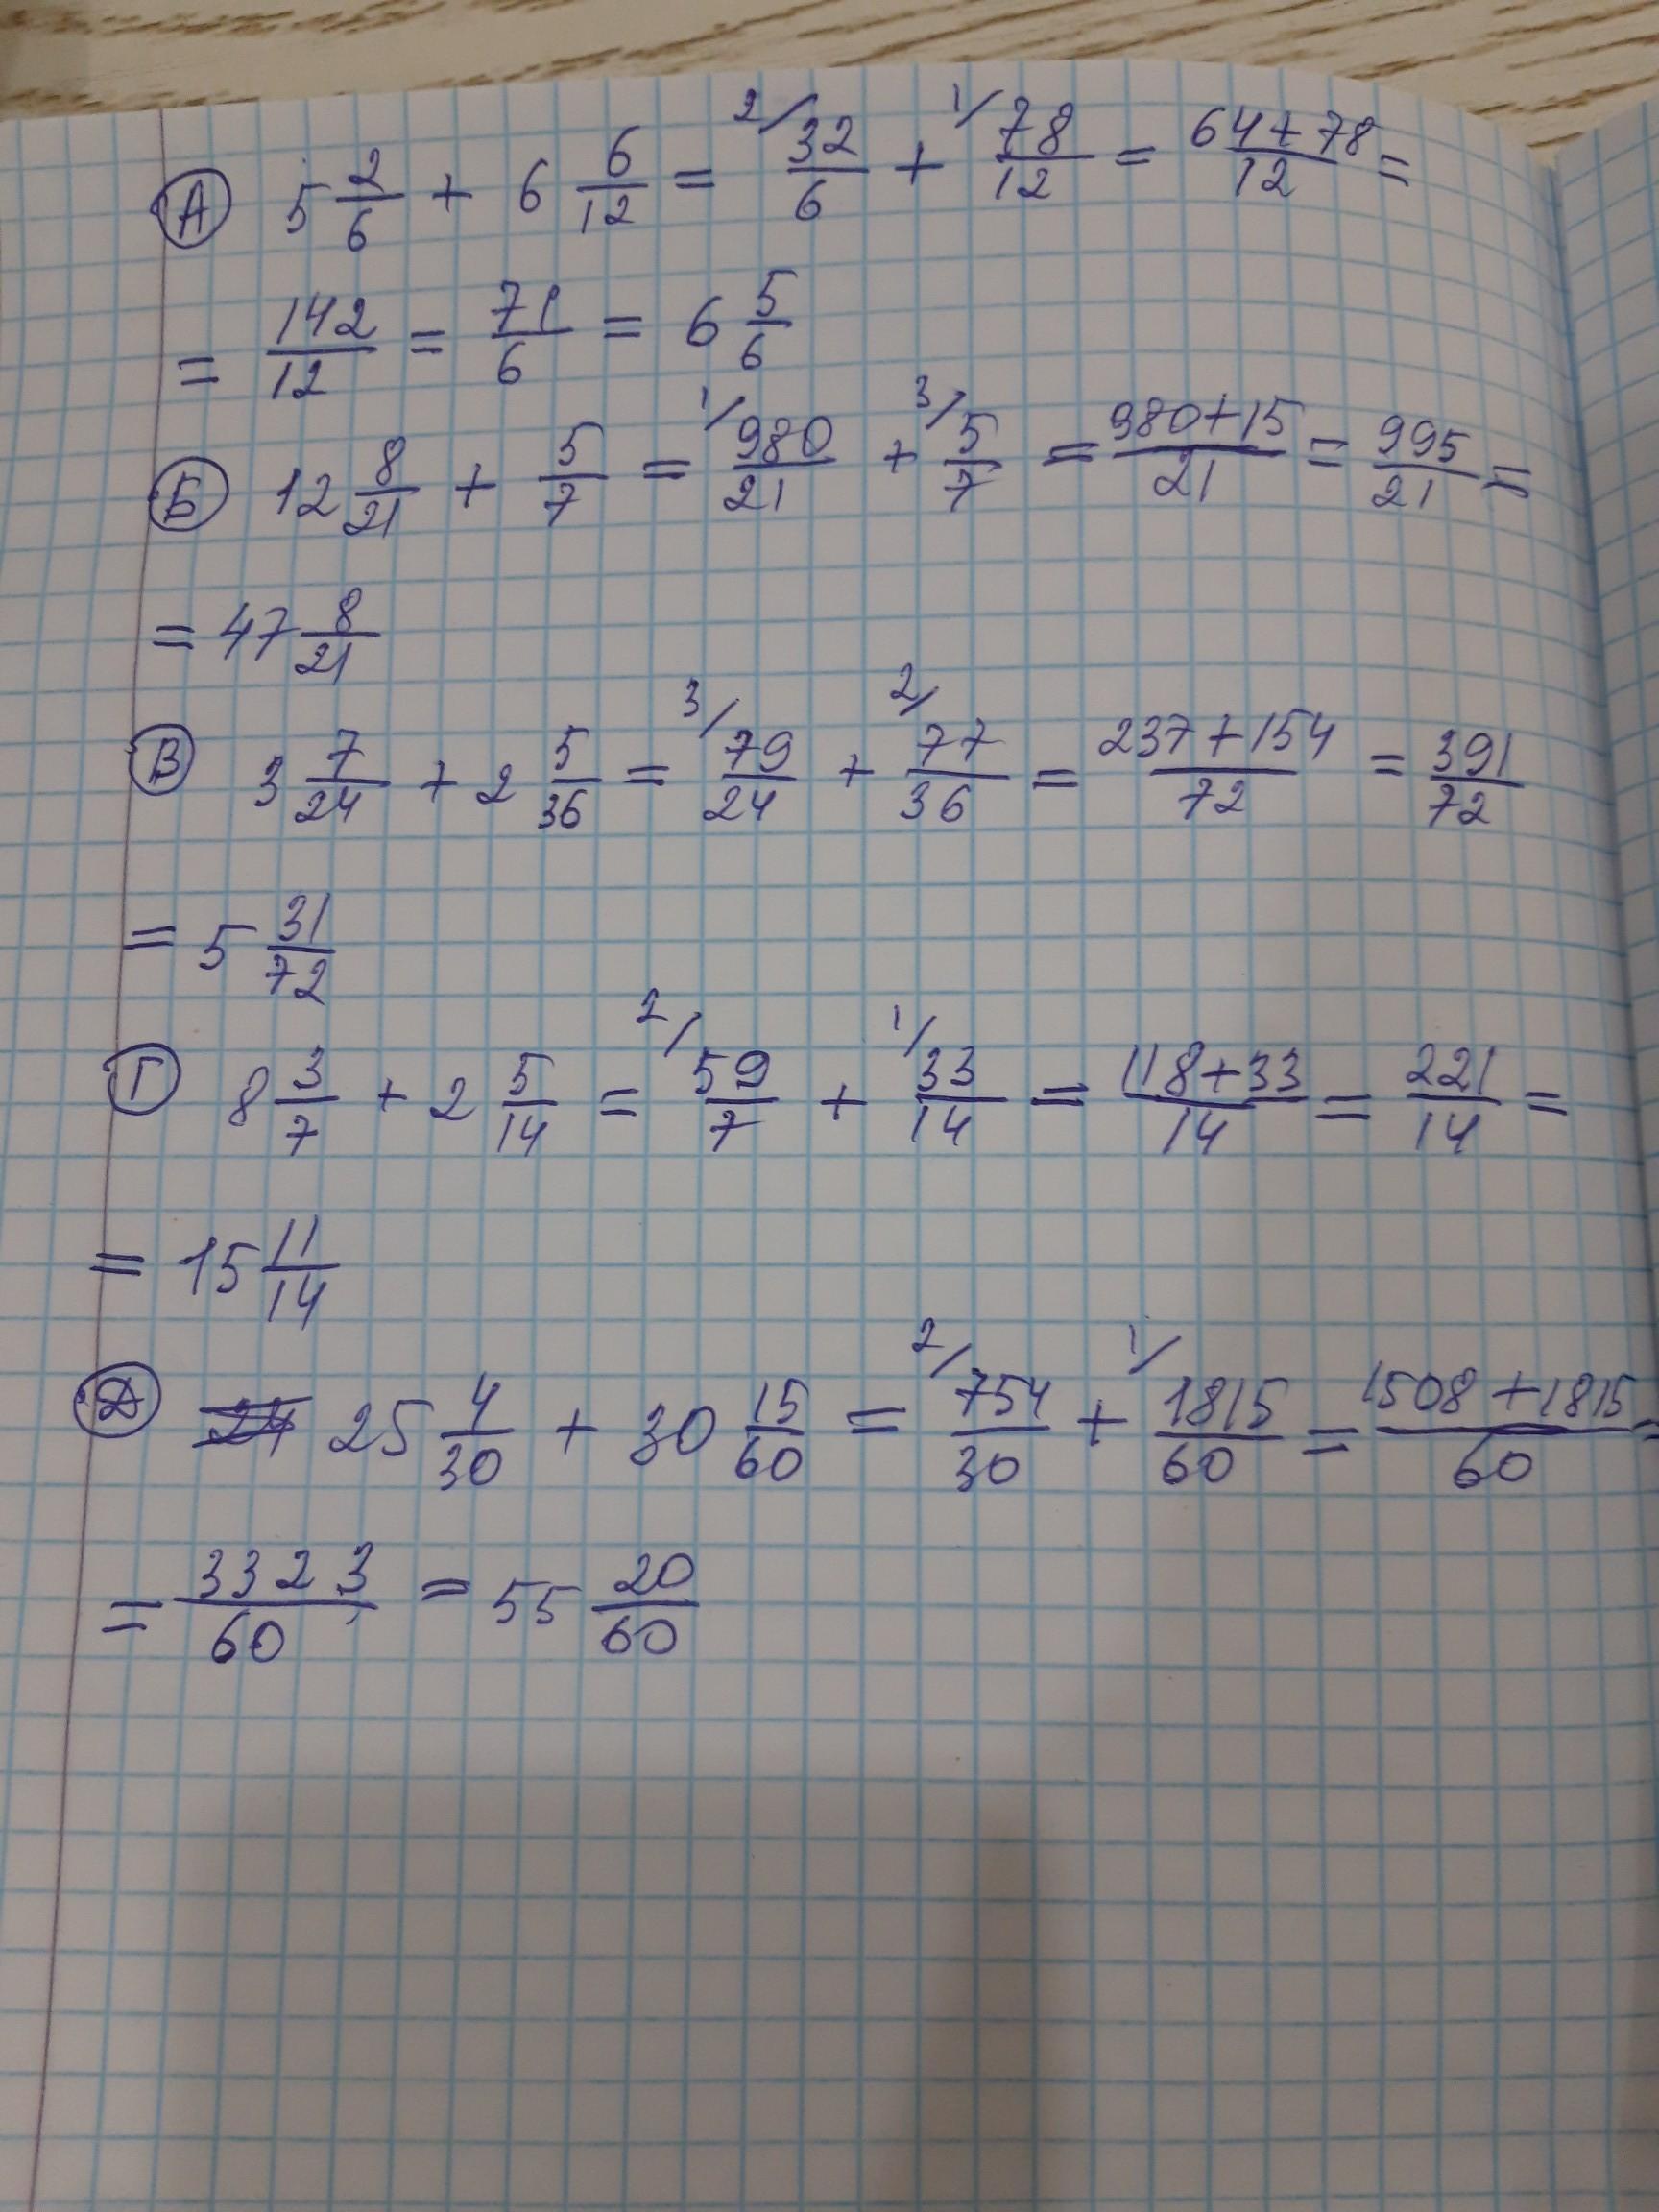 А 5 2/6 + 6 6/12 = 2/ 32/6 + 1/ 78/12 = 64+78/12 =
= 142/12 = 71/6 = 6 5/6
Б 12 8/21 + 5/7 = 1/ 980/21 + 3/ 5/7 = 980+15/21 = 995/21 =
= 47 8/21
В 3 7/24 + 2 5/36 = 3/ 79/24 + 2/ 77/36 = 237+154/72 = 391/72
= 5 31/72
Г 8 3/7 + 2 5/14 = 2/ 59/7 + 1/ 33/14 = 118+33/14 = 221/14 =
= 15 11/14
Д 25 4/30 + 30 15/60 = 2/ 754/30 + 1/ 1815/60 = 1508+1815/60 =
= 3323/60 = 55 20/60